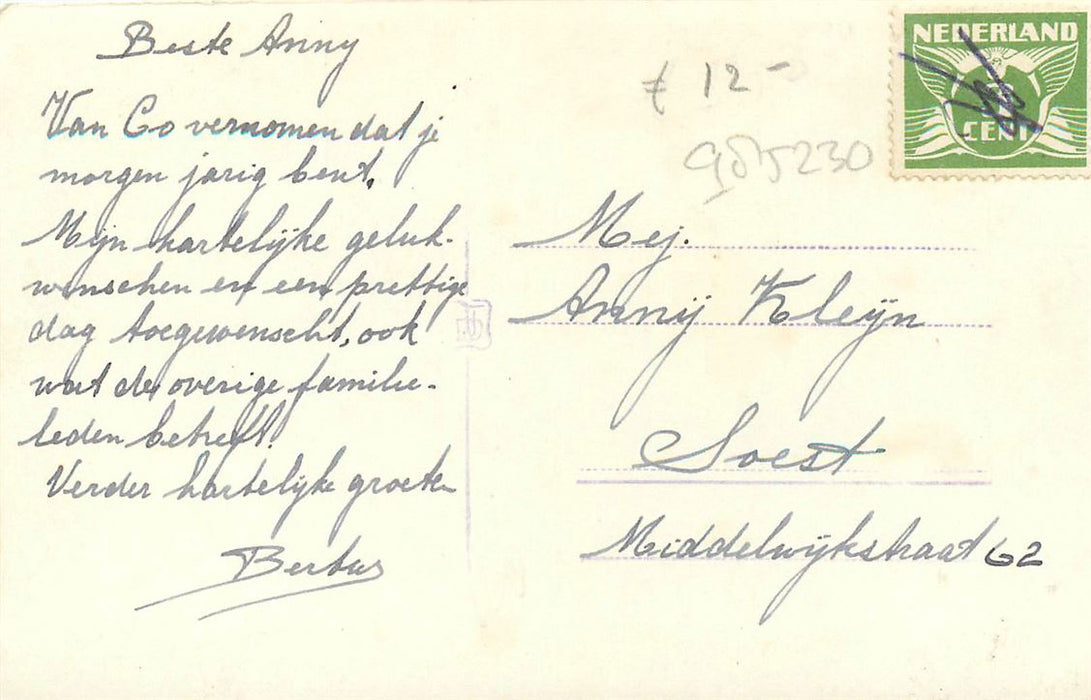 Beste Anny
Van Co vernomen dat je
morgen jarig bent.
Mijn hartelijke geluk-
wenschen en een prettige
dag toegewenscht, ook
wat de overige familie-
leden betreft.
Verder hartelijke groeten
Bertus
£ 12 -
985230
NEDERLAND
1
CENT
Mej.
Annij Kleijn
Soest
Middelwijkstraat 62